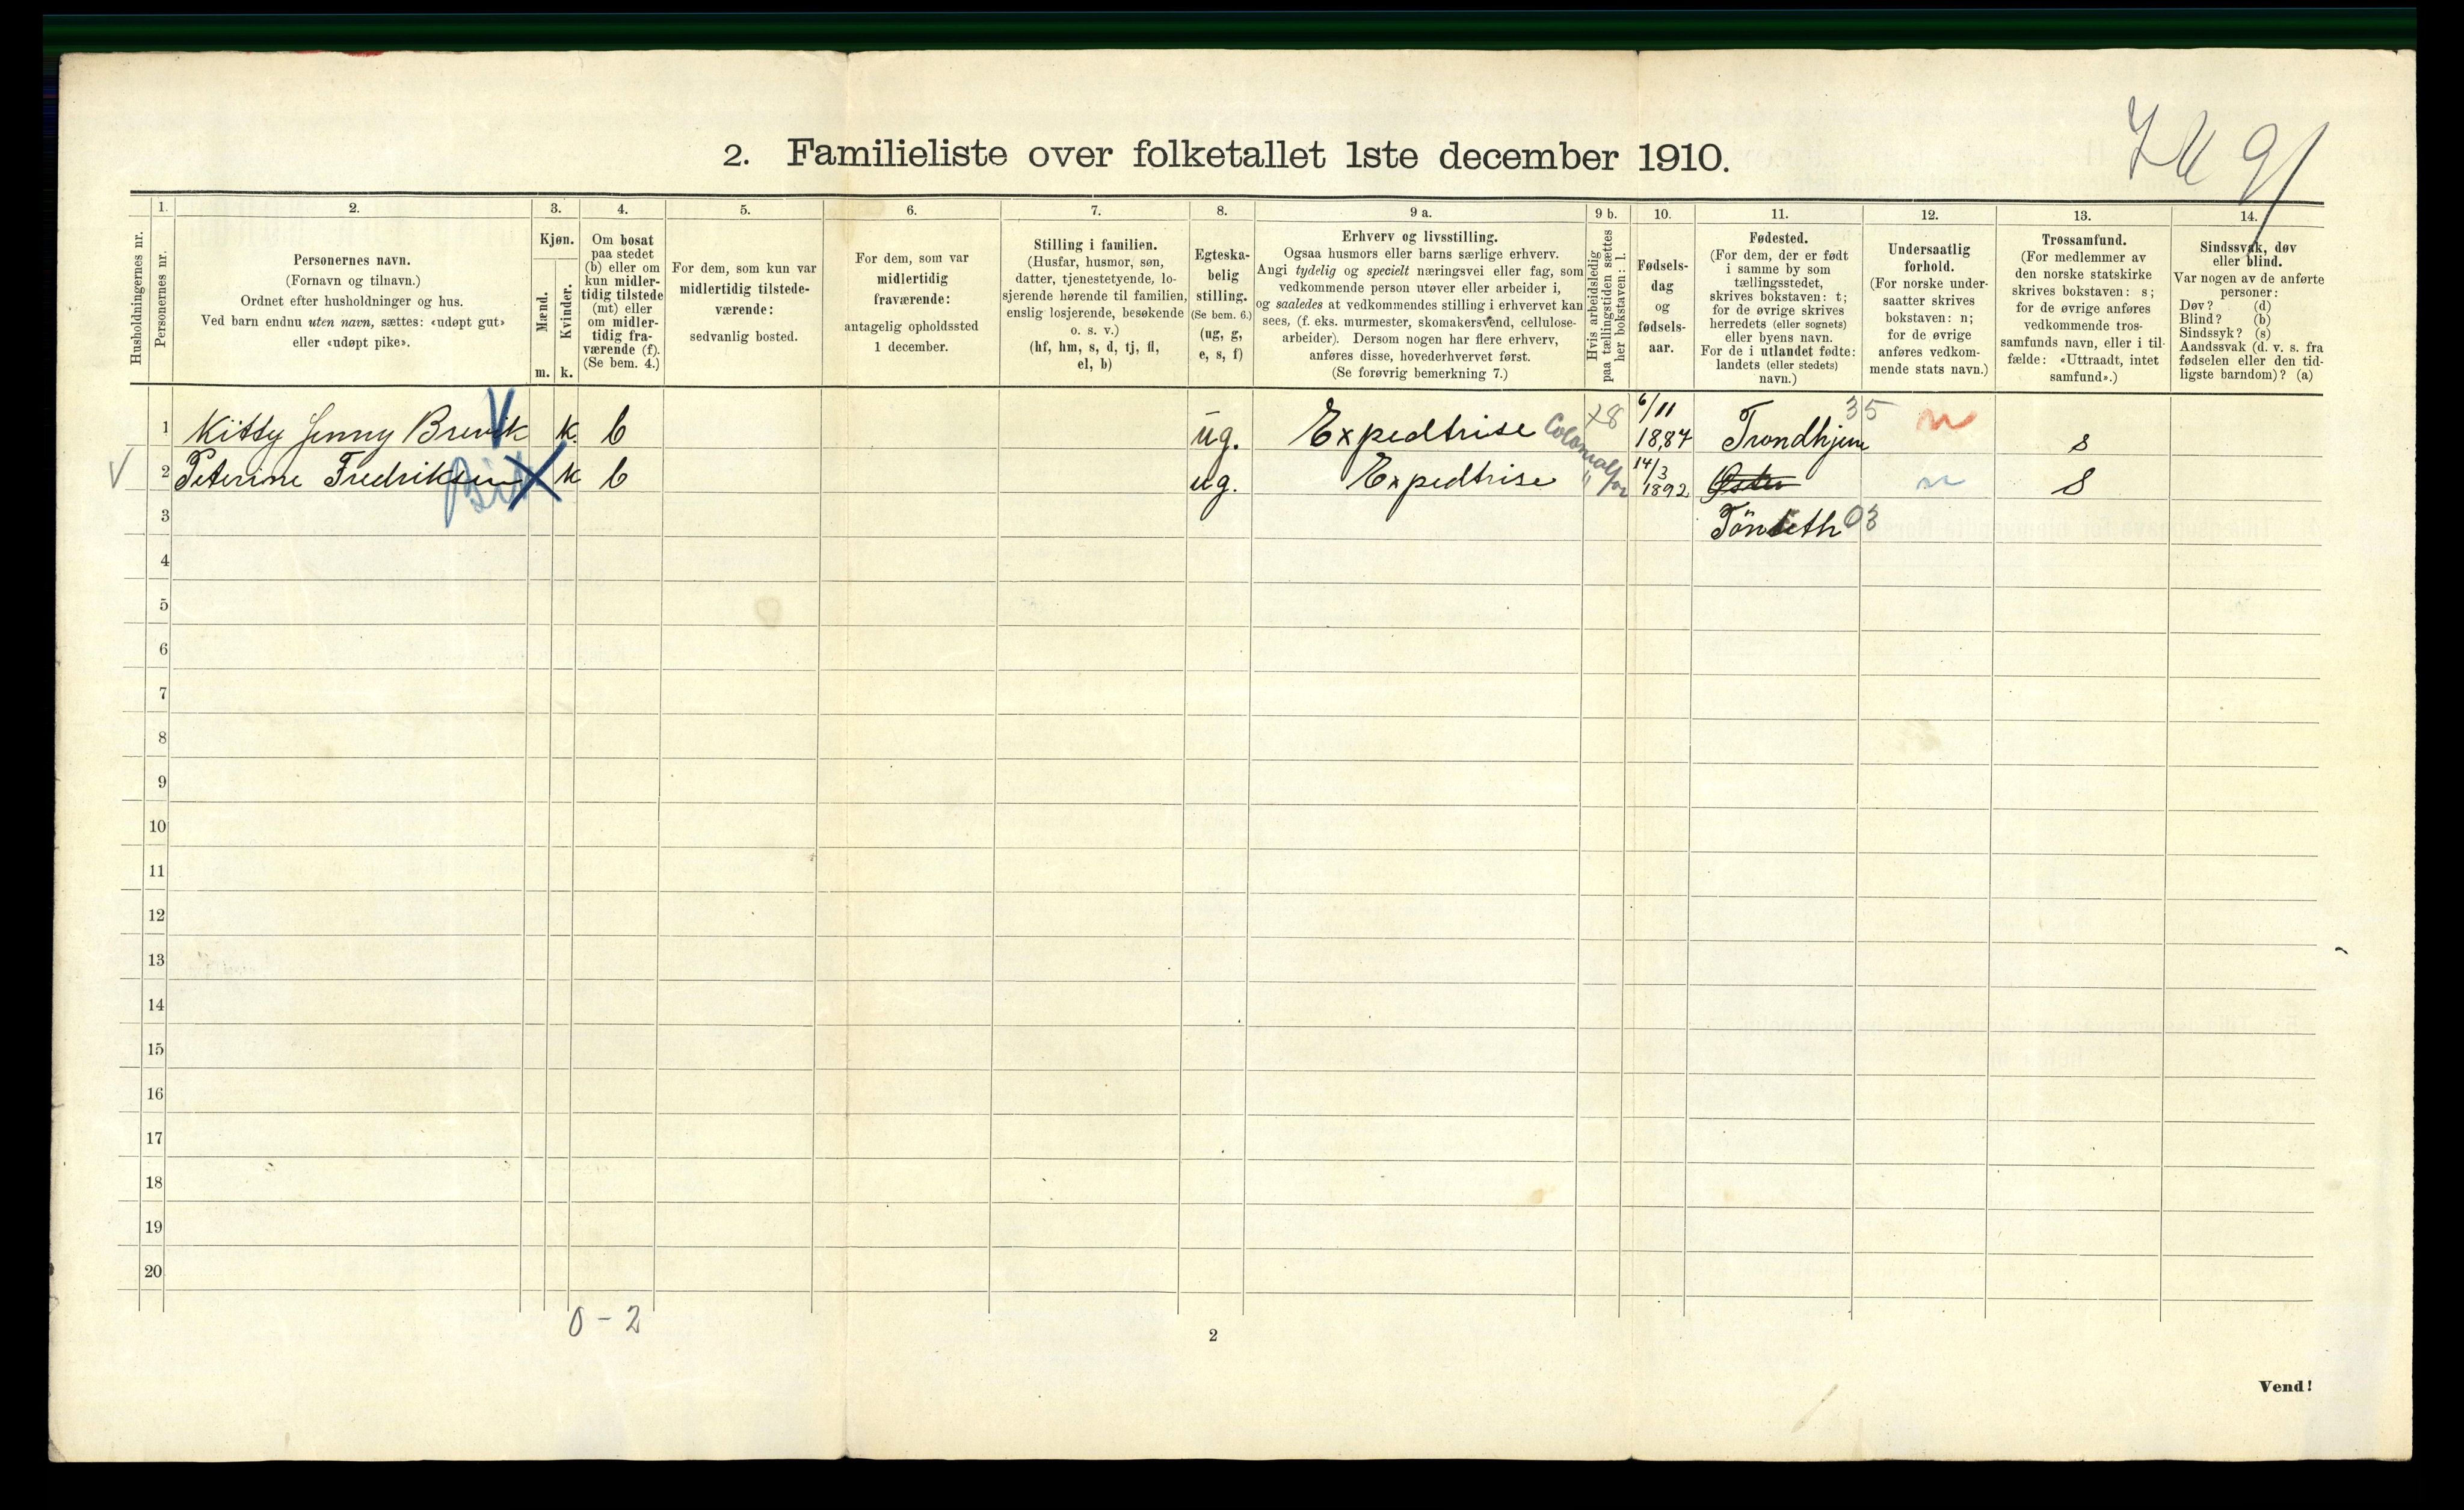 2. Familieliste over folketallet 1ste december 1910.
1. 2. 3. 4. 5. 6. 7. 8. 9 a. 9 b. 10. 11. 12. 13. 14.
Husholdningernes nr.
Personernes nr.
Personernes navn.
(Fornavn og tilnavn.)
Ordnet efter husholdninger og hus.
Ved barn endnu uten navn, sættes: «udøpt gut»
eller «udøpt pike».
Kjøn.
Mænd.
Kvinder.
m. k.
Om bosat
paa stedet
(b) eller om
kun midler-
tidig tilstede
(mt) eller
om midler-
tidig fra-
værende (f).
(Se bem. 4.)
For dem, som kun var
midlertidig tilstede-
værende:
sedvanlig bosted.
For dem, som var
midlertidig
fraværende:
antagelig opholdssted
1 december.
Stilling i familien.
(Husfar, husmor, søn,
datter, tjenestetyende, lo-
sjerende hørende til familien,
enslig losjerende, besøkende
o. s. v.)
(hf, hm, s, d, tj, fl,
el, b)
Egteska-
belig
stilling.
(Se bem. 6.)
(ug, g,
e, s, f)
Erhverv og livsstilling.
Ogsaa husmors eller barns særlige erhverv.
Angi tydelig og specielt næringsvei eller fag, som
vedkommende person utøver eller arbeider i,
og saaledes at vedkommendes stilling i erhvervet kan
sees, (f. eks. murmester, skomakersvend, cellulose-
arbeider). Dersom nogen har flere erhverv,
anføres disse, hovederhvervet først.
(Se forøvrig bemerkning 7.)
Hvis arbeidsledig
paa tællingstiden sættes
her bokstaven: l.
Fødsels-
dag
og
fødsels-
aar.
Fødested.
(For dem, der er født
i samme by som
tællingsstedet,
skrives bokstaven: t;
for de øvrige skrives
herredets (eller sognets)
eller byens navn.
For de i utlandet fødte:
landets (eller stedets)
navn.)
Undersaatlig
forhold.
(For norske under-
saatter skrives
bokstaven: n;
for de øvrige
anføres vedkom-
mende stats navn.)
Trossamfund.
(For medlemmer av
den norske statskirke
skrives bokstaven: s;
for de øvrige anføres
vedkommende tros-
samfunds navn, eller i til-
fælde: «Uttraadt, intet
samfund».)
Sindssvak, døv
eller blind.
Var nogen av de anførte
personer:
Døv? (d)
Blind? (b)
Sindssyk? (s)
Aandssvak (d. v. s. fra
fødselen eller den tid-
ligste barndom)? (a)
1 Kitty Jenny Brevik k. b ug. Expedtrise 6/11 1887 Trondhjem 35 n s
2 Peterine Fredriksen k b ug. Expedtrise 14/3 1892 n s
3 Tönseth 03
4
5
6
7
8
9
10
11
12
13
14
15
16
17
18
19
20
0 - 2
2
Vend!